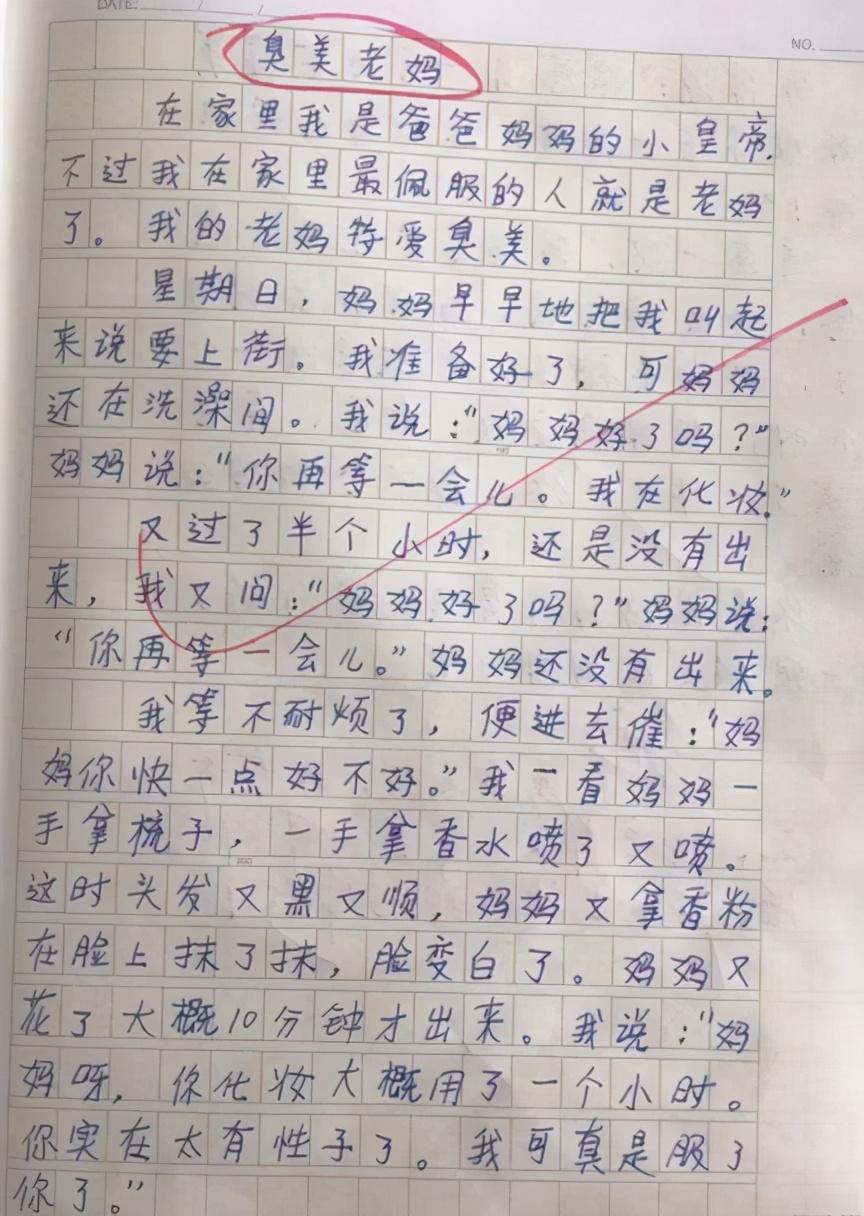 DATE: / /
NO.
臭美老妈
在家里我是爸爸妈妈的小皇帝.
不过我在家里最佩服的人就是老妈
了。我的老妈特爱臭美。
星期日，妈妈早早地把我叫起
来说要上街。我准备好了，可妈妈
还在洗澡间。我说：“妈妈好了吗？”
妈妈说：“你再等一会儿。我在化妆。”
又过了半个小时，还是没有出
来，我又问：“妈妈好了吗？”妈妈说：
“你再等一会儿。”妈妈还没有出来。
我等不耐烦了，便进去催：“妈
妈你快一点好不好。”我一看妈妈一
手拿梳子，一手拿香水喷了又喷。
这时头发又黑又顺，妈妈又拿香粉
在脸上抹了抹，脸变白了。妈妈又
花了大概10分钟才出来。我说：“妈
妈呀，你化妆大概用了一个小时。
你实在太有性子了。我可真是服了
你了。”